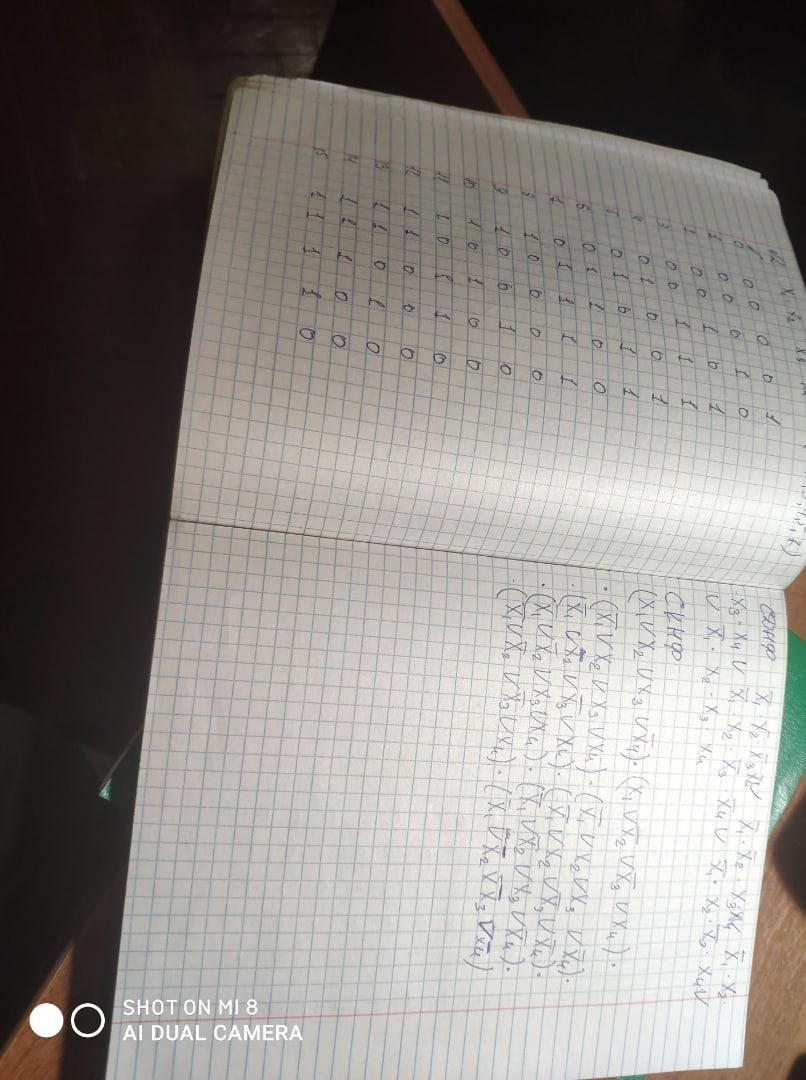 0 0 0 0 0 1
1 0 0 0 1 0
2 0 0 1 0 1
3 0 0 1 1 1
4 0 1 0 0 1
5 0 1 0 1 1
6 0 1 1 0 0
7 0 1 1 1 1
8 1 0 0 0 0
9 1 0 0 1 0
10 1 0 1 0 0
11 1 0 1 1 0
12 1 1 0 0 0
13 1 1 0 1 0
14 1 1 1 0 0
15 1 1 1 1 0
СДНФ x̅₁·x̅₂·x̅₃x̅₄V x̅₁·x̅₂·x₃x̅₄ x̅₁·x̅₂·
x₃·x₄ V x̅₁·x₂·x̅₃·x̅₄ V x̅₁·x₂·x̅₃·x₄V
V x̅₁·x₂·x₃·x₄
СКНФ
(x₁Vx₂Vx₃Vx̅₄)·(x₁Vx̅₂Vx̅₃Vx₄)·
·(x̅₁Vx₂Vx₃Vx₄)·(x̅₁Vx₂Vx₃Vx̅₄)·
·(x̅₁Vx₂Vx̅₃Vx₄)·(x̅₁Vx₂Vx̅₃Vx̅₄)·
·(x̅₁Vx̅₂Vx₃Vx₄)·(x̅₁Vx̅₂Vx₃Vx̅₄)·
·(x̅₁Vx̅₂Vx̅₃Vx₄)·(x̅₁Vx̅₂Vx̅₃Vx̅₄)
SHOT ON MI 8
AI DUAL CAMERA